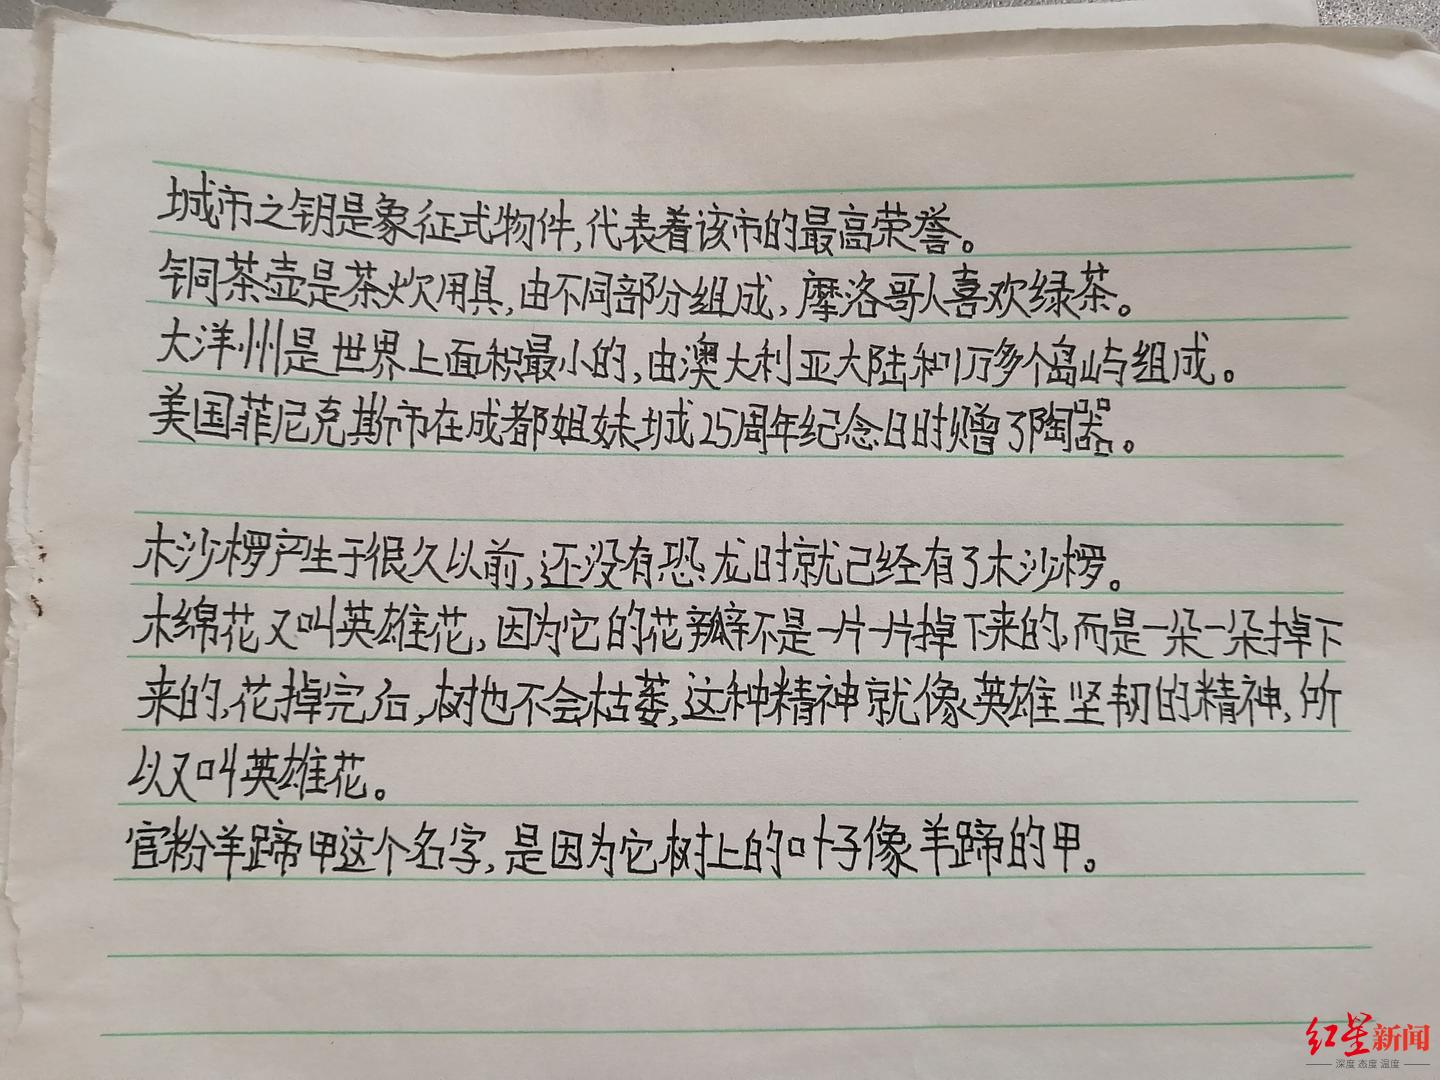 城市之钥是象征式物件,代表着该市的最高荣誉。
铜茶壶是茶炊用具,由不同部分组成,摩洛哥人喜欢绿茶。
大洋州是世界上面积最小的,由澳大利亚大陆和1万多个岛屿组成。
美国菲尼克斯市在成都姐妹城25周年纪念日时赠了陶器。
木沙椤产生于很久以前,还没有恐龙时就已经有了木沙椤。
木绵花又叫英雄花,因为它的花瓣不是一片一片掉下来的,而是一朵一朵掉下
来的,花掉完后,树也不会枯萎,这种精神就像英雄坚韧的精神,所
以又叫英雄花。
官粉羊蹄甲这个名字,是因为它树上的叶子像羊蹄的甲。
红星新闻
深度 态度 温度